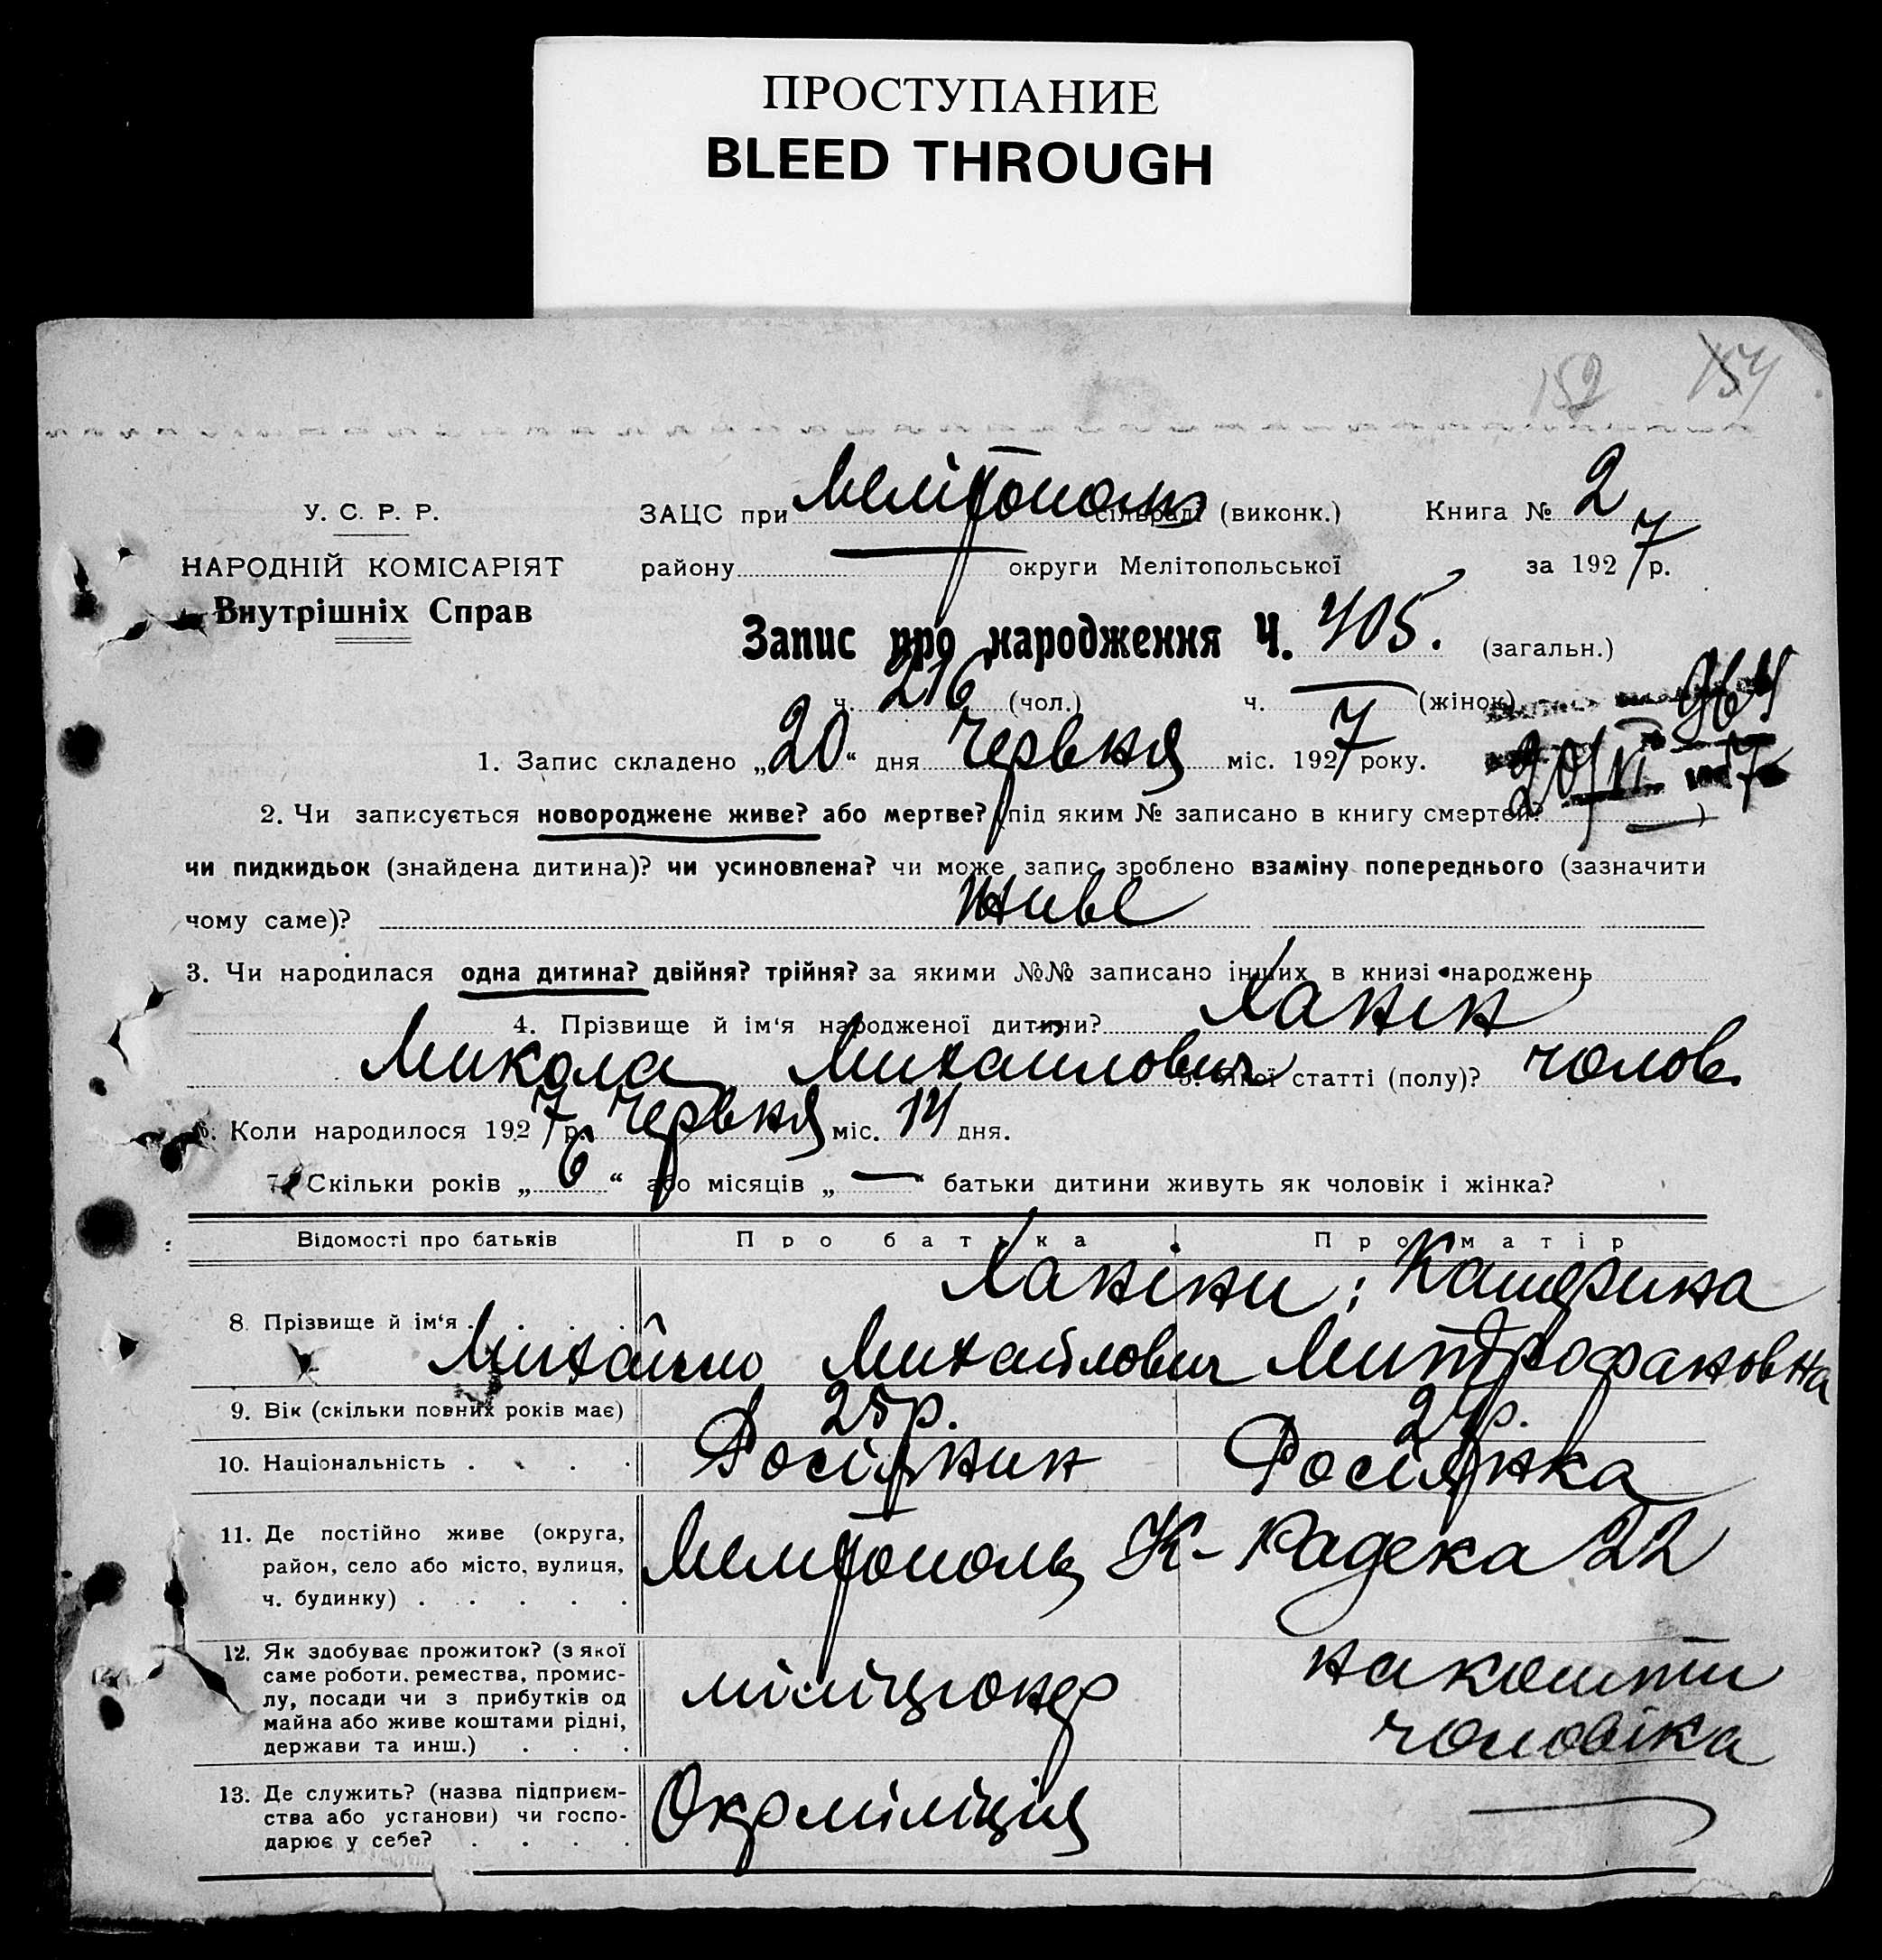 ПРОСТУПАНИЕ
BLEED THROUGH
152 154
У. С. Р. Р.
НАРОДНІЙ КОМІСАРІЯТ
Внутрішніх Справ
ЗАЦС при Мелітополь сільраді (виконк.) Книга № 2
району — округи Мелітопольської за 1927 р.
Запис про народження Ч. 405. (загальн.)
ч. 216 (чол.) ч. — (жінок)
1. Запис складено „20“ дня Червня міс. 1927 року.
2. Чи записується новороджене живе? або мертве? (під яким № записано в книгу смертей? — )
чи пидкидьок (знайдена дитина)? чи усиновлена? чи може запис зроблено взаміну попереднього (зазначити
чому саме)? живе
3. Чи народилася одна дитина? двійня? трійня? за якими №№ записано інших в книзі народжень
4. Прізвище й ім‘я народженої дитини? Ханін
Микола Михайлович 5. Якої статті (полу)? чолов.
6. Коли народилося 1927 р. Червня міс. 14 дня.
7. Скільки років „6“ або місяців „—“ батьки дитини живуть як чоловік і жінка?
Відомості про батьків Про батька Про матір
8. Прізвище й ім‘я . . . . Ханіни: Катерина
Михайло Михайлович Митрофановна
9. Вік (скільки повних років має) 25 р. 24 р.
10. Національність . . . . Росіянин Росіянка
11. Де постійно живе (округа,
район, село або місто, вулиця,
ч. будинку) . . . . .
Мелітополь К-Радека 22
12. Як здобуває прожиток? (з якої
саме роботи, ремества, промис-
лу, посади чи з прибутків од
майна або живе коштами рідні,
держави та инш.) . . .
міліціонер
на кошти
чоловіка
13. Де служить? (назва підприєм-
ства або установи) чи госпо-
дарює у себе? . . . .
Окрміліція —